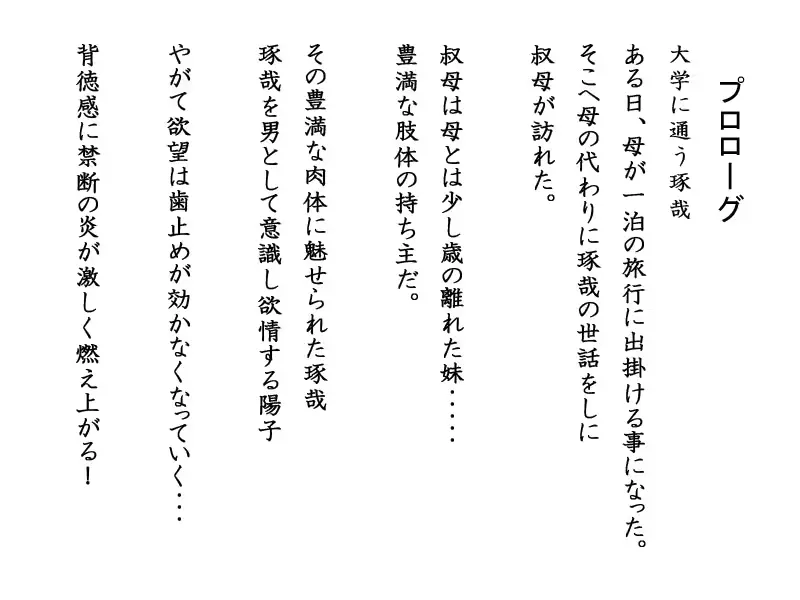 プロローグ
大学に通う琢哉
ある日、母が一泊の旅行に出掛ける事になった。
そこへ母の代わりに琢哉の世話をしに
叔母が訪れた。
叔母は母とは少し歳の離れた妹‥‥‥
豊満な肢体の持ち主だ。
その豊満な肉体に魅せられた琢哉
琢哉を男として意識し欲情する陽子
やがて欲望は歯止めが効かなくなっていく‥‥
背徳感に禁断の炎が激しく燃え上がる！